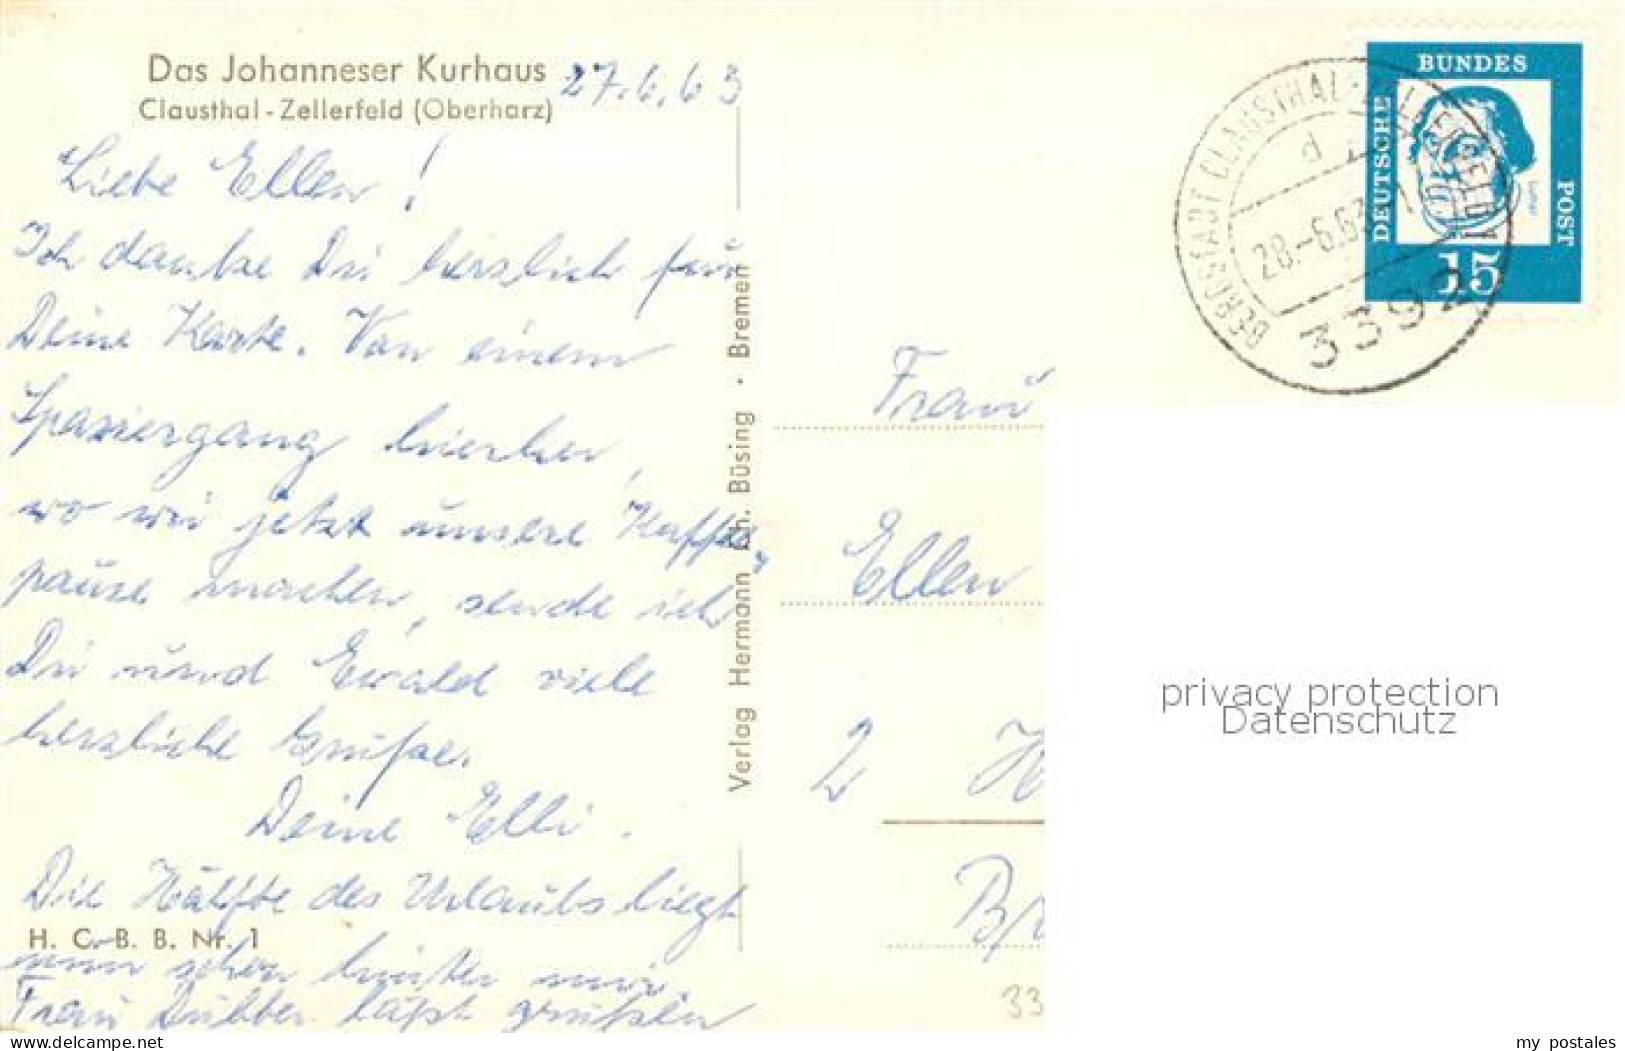 Das Johanneser Kurhaus 27.6.63
Clausthal-Zellerfeld (Oberharz)
Liebe Ellen!
Ich danke Dir herzlich für
Deine Karte. Von einem
Spaziergang hierher,
wo wir jetzt unsere Kaffee-
pause machen, sende ich
Dir und Ewald viele
herzliche Grüße.
Deine Elli.
Die Hälfte des Urlaubs liegt
H. C. B. B. Nr. 1
nun schon hinter mir.
Frau läßt grüßen
Verlag Hermann Ch. Büsing · Bremen
BERGSTADT CLAUSTHAL-ZELLERFELD 1
d
28.-6.63
3392
BUNDES
DEUTSCHE
POST
Luther
15
Frau
Ellen
2 H
Br
33
privacy protection
Datenschutz
delcampe.net
my_postales